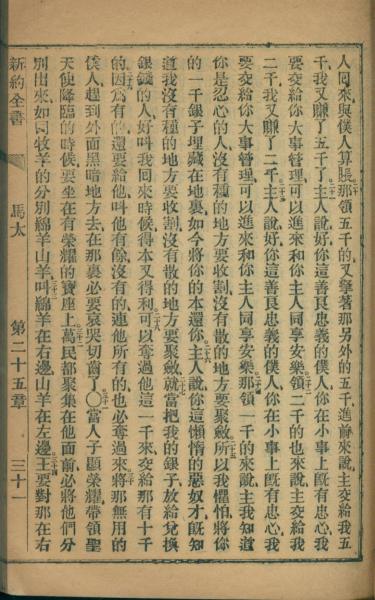 人回來與僕人算賬那領五千的又拏著那另外的五千進前來說主交給我五
千我又賺了五千了主人說好你這善良忠義的僕人你在小事上旣有忠心我
要交給你大事管理可以進來和你主人同享安樂那領二千的也來說主交給我
二千我又賺了二千主人說好你這善良忠義的僕人你在小事上旣有忠心我
要交給你大事管理可以進來和你主人同享安樂那領一千的來說主我知道
你是忍心的人沒有種的地方要收割沒有散的地方要聚斂所以我懼怕將你
的一千銀子埋藏在地裏如今將你的本還你主人說你這懶惰的惡奴才旣知
道我沒有種的地方要收割沒有散的地方要聚斂就當把我的銀子放給兌換
銀錢的人好叫我回來時候得本又得利可以奪過他這一千來交給那有十千
的因爲有的還要給他叫他有餘沒有的連他所有的也必奪過來將那無用的
僕人趕到外面黑暗地方去在那裏必要哀哭切齒了〇當人子顯榮耀帶領聖
天使降臨的時候要坐在有榮耀的寶座上萬民都聚集在他面前必將他們分
別出來如同牧羊的分別綿羊山羊叫綿羊在右邊山羊在左邊王要對那在右
新約全書 馬太 第二十五章 三十一